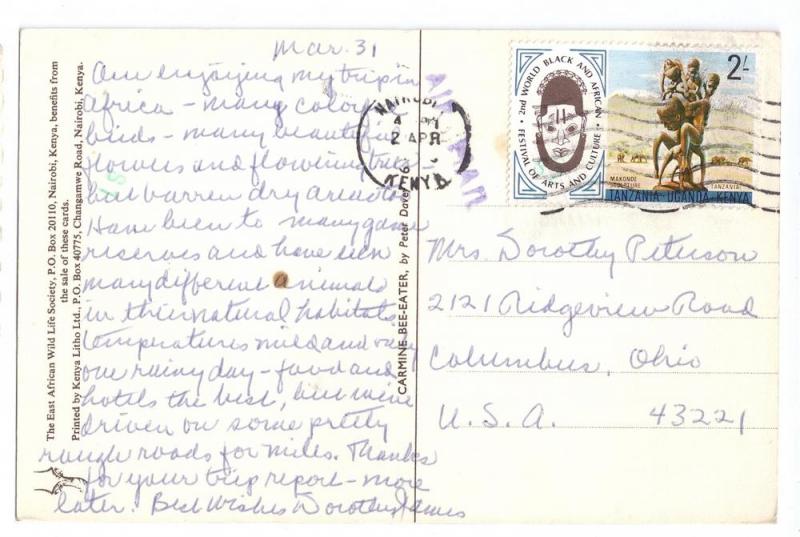 Mar. 31
Am enjoying my trip in
Africa - many color
birds - many beautiful
flowers and flowering trees -
but barren dry areas too.
Have been to many game
reserves and have seen
many different animals
in their natural habitats
temperatures mild and only
one rainy day - food and
hotels the best, but we've
driven on some pretty
rough roads for miles. Thanks
for your trip report - more
later. Best Wishes Dorothy James
The East African Wild Life Society, P.O. Box 20110, Nairobi, Kenya, benefits from
the sale of these cards.
Printed by Kenya Litho Ltd., P.O. Box 40775, Changamwe Road, Nairobi, Kenya.
CARMINE BEE-EATER, by Peter
NAIROBI
2 APR
KENYA
2nd WORLD BLACK AND AFRICAN
FESTIVAL OF ARTS AND CULTURE
2/-
MAKONDE
SCULPTURE
TANZANIA
TANZANIA-UGANDA-KENYA
Mrs. Dorothy Peterson
2121 Ridgeview Road
Columbus, Ohio
U.S.A. 43221